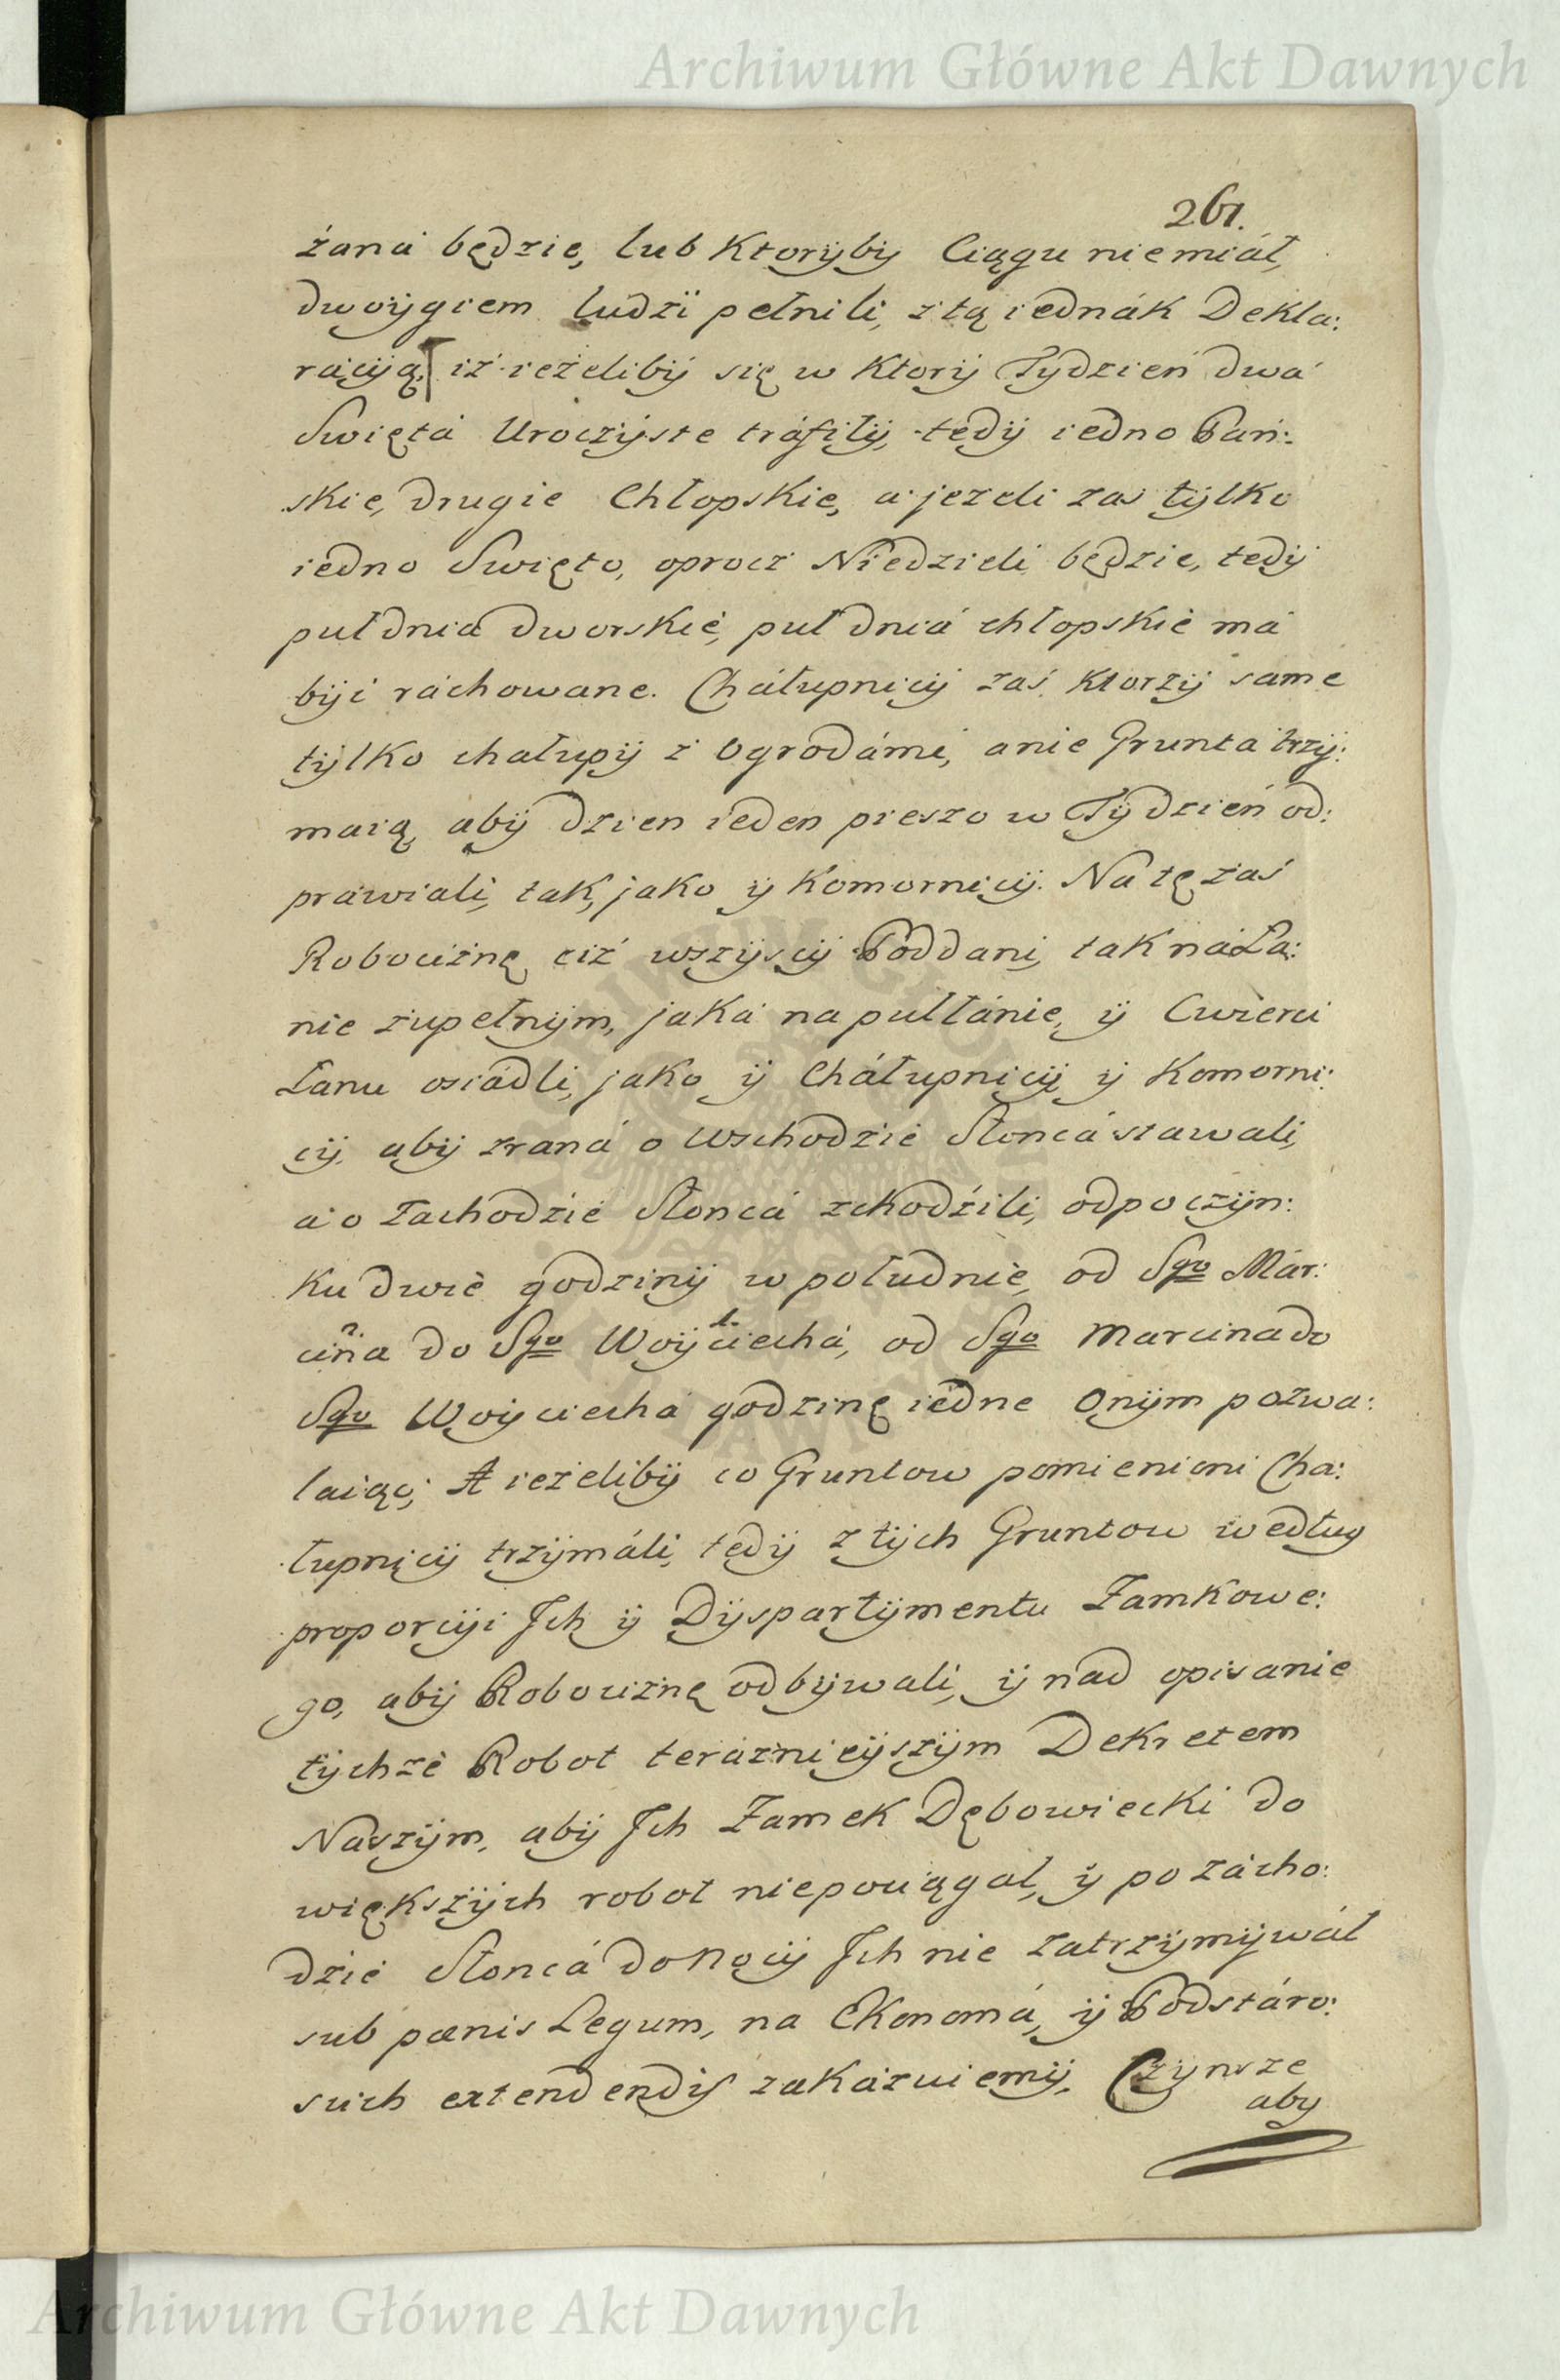 Archiwum Główne Akt Dawnych
261.
żaná będzie, lub Ktoryby Ciągu niemiáł,
dwoygiem ludzi pełnili, z tą iednák Dekla:
racyą, iż ieżeliby się w Ktory Tydzień dwá
Swięta Uroczyste tráfiły, tedy iedno Pań:
skie, drugie Chłopskie, a jezeli zas tylko
iedno Swięto, oprocz Niedzieli będzie, tedy
puł dniá dworskié, puł dniá chłopskié má
byi ráchowane. Cháłupnicy zaś Ktorzy same
tylko chałupy z Ogrodámi, anie Grunta trzy:
maią, aby dzien ieden pieszo w Tydzień od:
práwiali, tak, jako y Komornicy. Na tę zaś
Robociznę ciż wszyscy Poddani, tak ná Ła:
nie zupełnym, jaká na pułłánie, y Cwierci
Łanu osiádli, jako y Cháłupnicy y Komorni:
cy, aby zraná o Wschodzié Słoncá stawali,
a o Zachodzié Słoncá zchodźili, odpoczyn:
Ku dwié godziny w południé, od Sgo Már:
cina do Sgo Woyciechá, od Sgo Marcina do
Sgo Woyciechá godzinę iédne Onym pozwa:
laiąc; A ieżeliby co Gruntow pomienioni Cha:
łupnicy trzymáli, tedy z tych Gruntow według
proporcyi Ich y Dyspartymentu Zamkowe:
go, aby Robociznę odbywali, y nad opisanie
tychzé Robot teráznieyszym Dekretem
Naszym, aby Ich Zamek Dębowiecki do
większych robot niepociągał, y po zácho:
dzié Słoncá do Nocy Ich nie zatrzymywáł
sub pœnis Legum, na Ekonomá, y Podstáro:
sich extendendis zakázuiemy. Czynsze
aby
Archiwum Główne Akt Dawnych